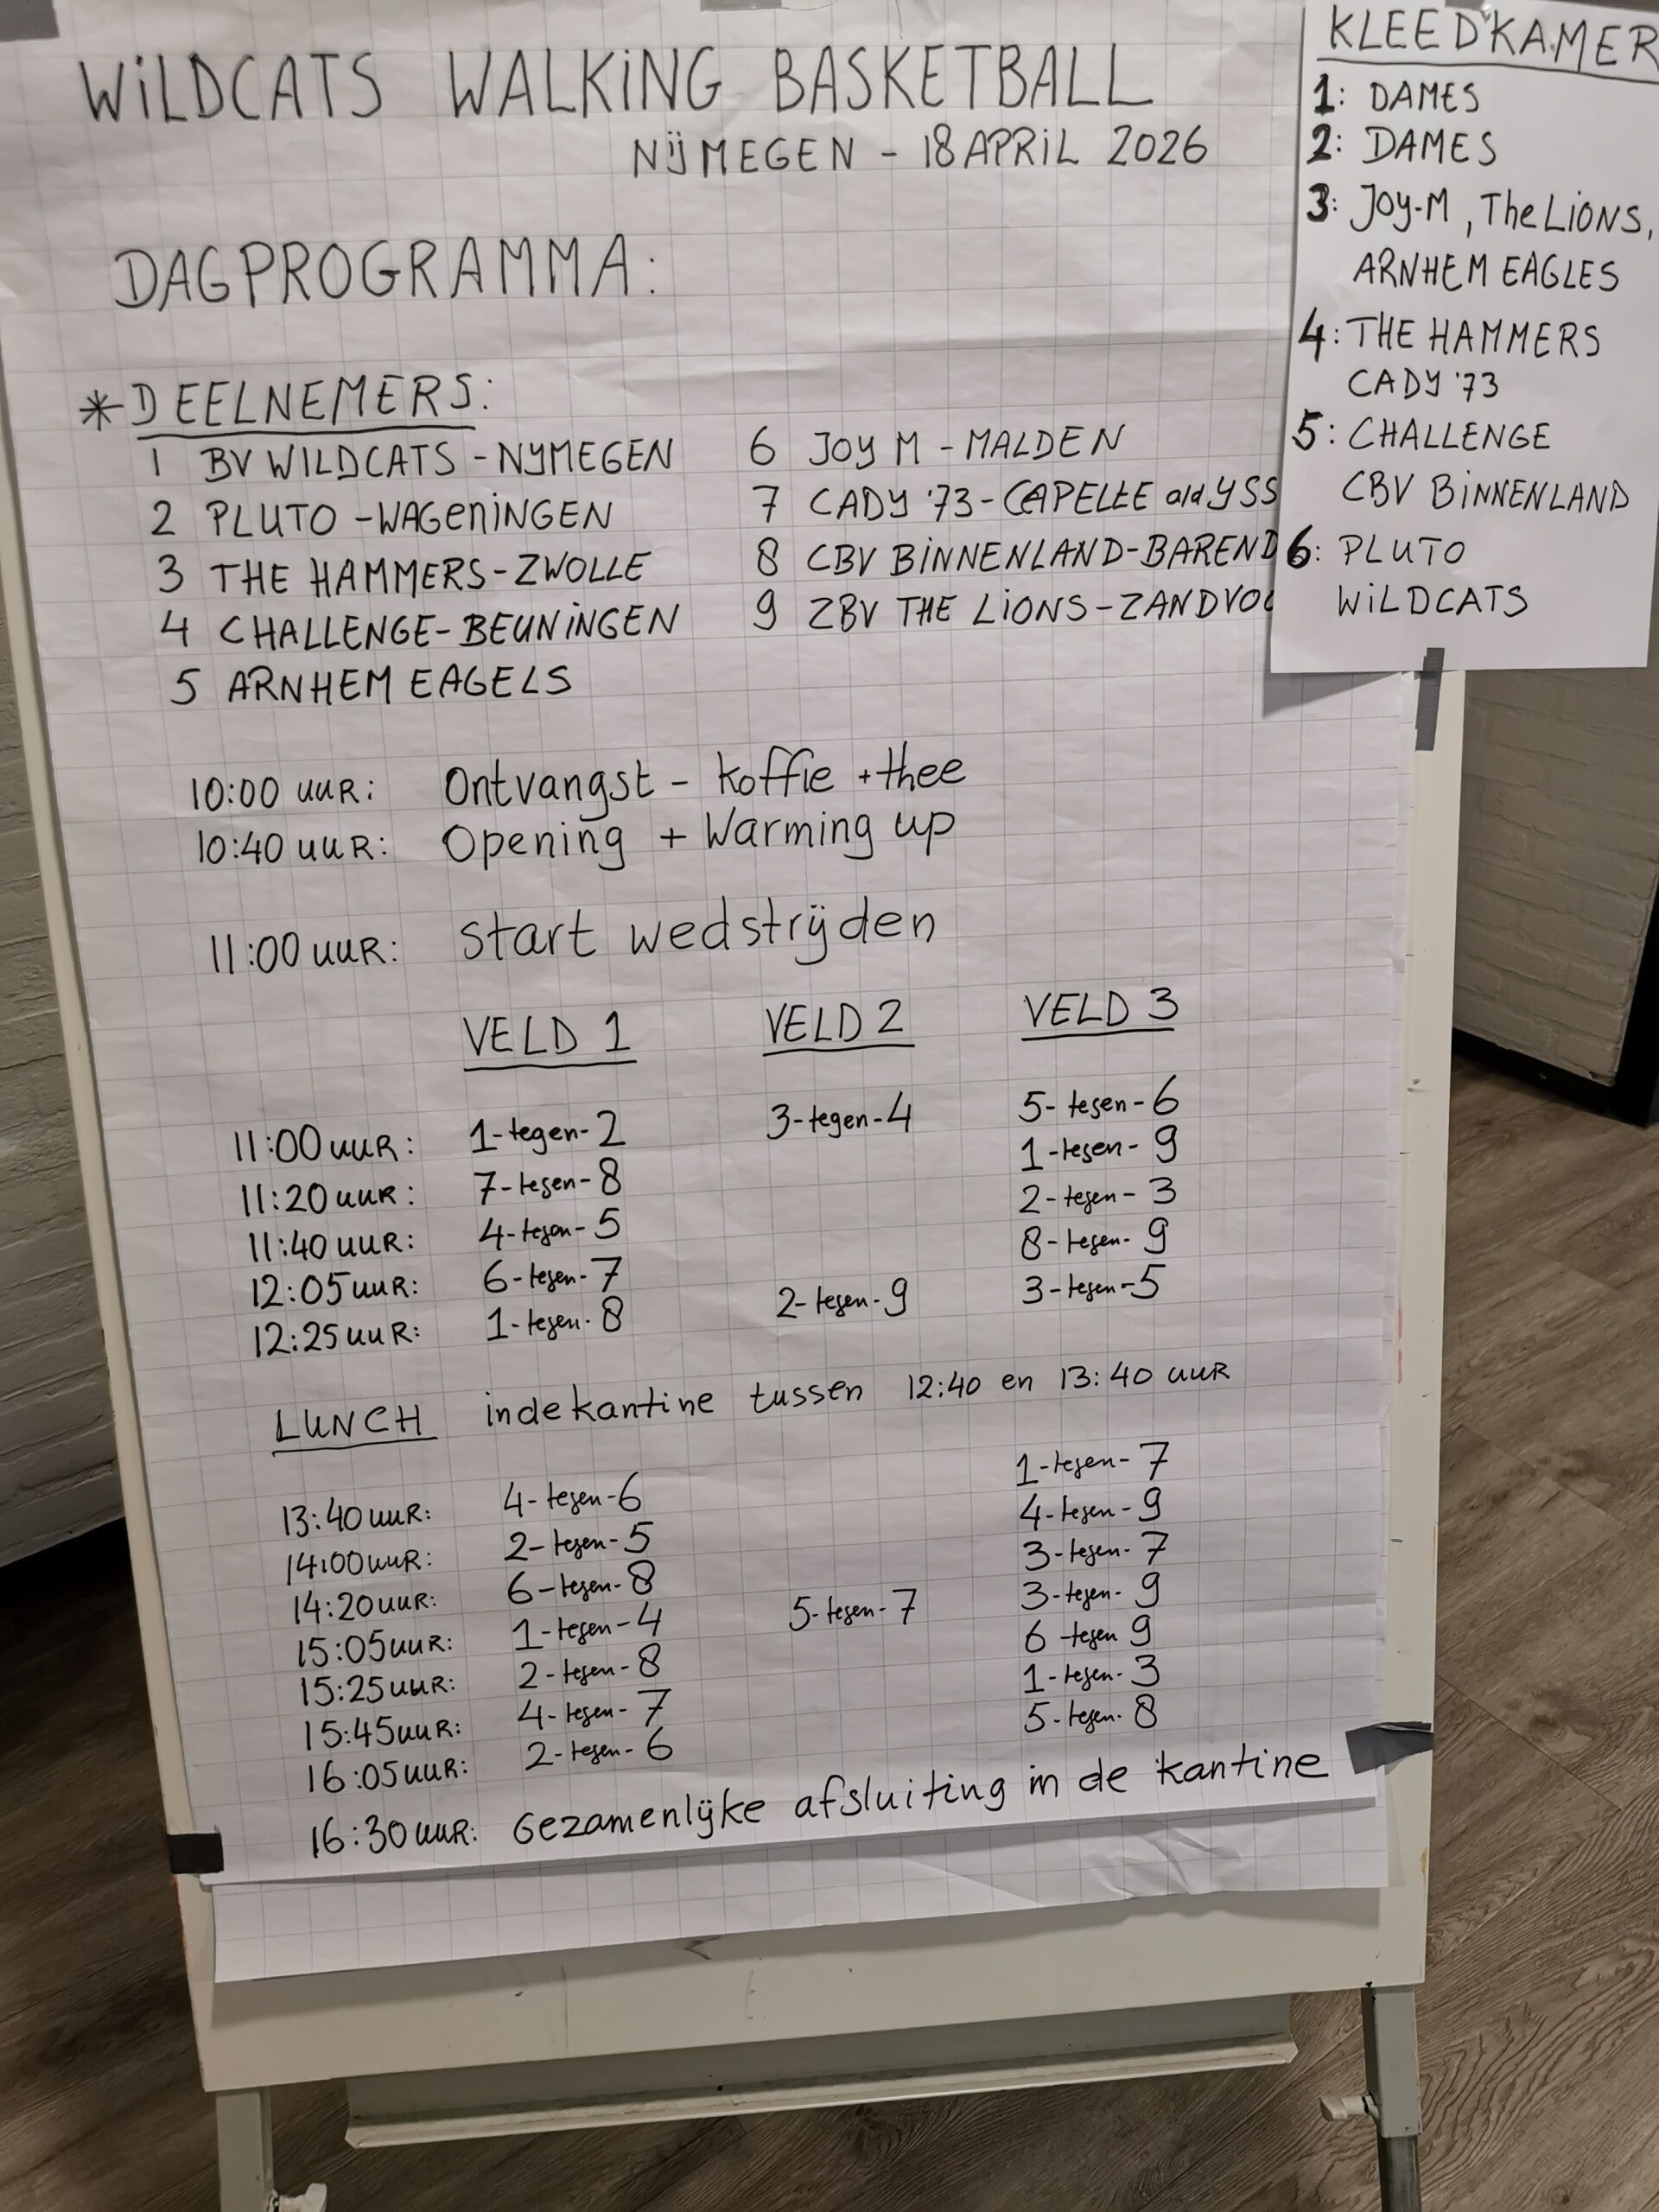 WILDCATS WALKING BASKETBALL
NIJMEGEN - 18 APRIL 2026
DAGPROGRAMMA:
* DEELNEMERS:
1 BV WILDCATS - NYMEGEN
2 PLUTO - WAGENINGEN
3 THE HAMMERS - ZWOLLE
4 CHALLENGE - BEUNINGEN
5 ARNHEM EAGELS
6 JOY M - MALDEN
7 CADY '73 - CAPELLE a/d YSS
8 CBV BINNENLAND - BAREND
9 ZBV THE LIONS - ZANDVO
KLEEDKAMER
1: DAMES
2: DAMES
3: JOY-M, The LIONS,
ARNHEM EAGLES
4: THE HAMMERS
CADY '73
5: CHALLENGE
CBV BINNENLAND
6: PLUTO
WILDCATS
10:00 UUR: Ontvangst - koffie + thee
10:40 UUR: Opening + Warming up
11:00 UUR: start wedstrijden
VELD 1 VELD 2 VELD 3
11:00 UUR: 1-tegen-2 3-tegen-4 5-tegen-6
11:20 UUR: 7-tegen-8 1-tegen-9
11:40 UUR: 4-tegen-5 2-tegen-3
12:05 UUR: 6-tegen-7 8-tegen-9
12:25 UUR: 1-tegen-8 2-tegen-9 3-tegen-5
LUNCH in de kantine tussen 12:40 en 13:40 UUR
13:40 UUR: 4-tegen-6 1-tegen-7
14:00 UUR: 2-tegen-5 4-tegen-9
14:20 UUR: 6-tegen-8 3-tegen-7
15:05 UUR: 1-tegen-4 5-tegen-7 3-tegen-9
15:25 UUR: 2-tegen-8 6-tegen 9
15:45 UUR: 4-tegen-7 1-tegen-3
16:05 UUR: 2-tegen-6 5-tegen-8
16:30 UUR: Gezamenlijke afsluiting in de kantine